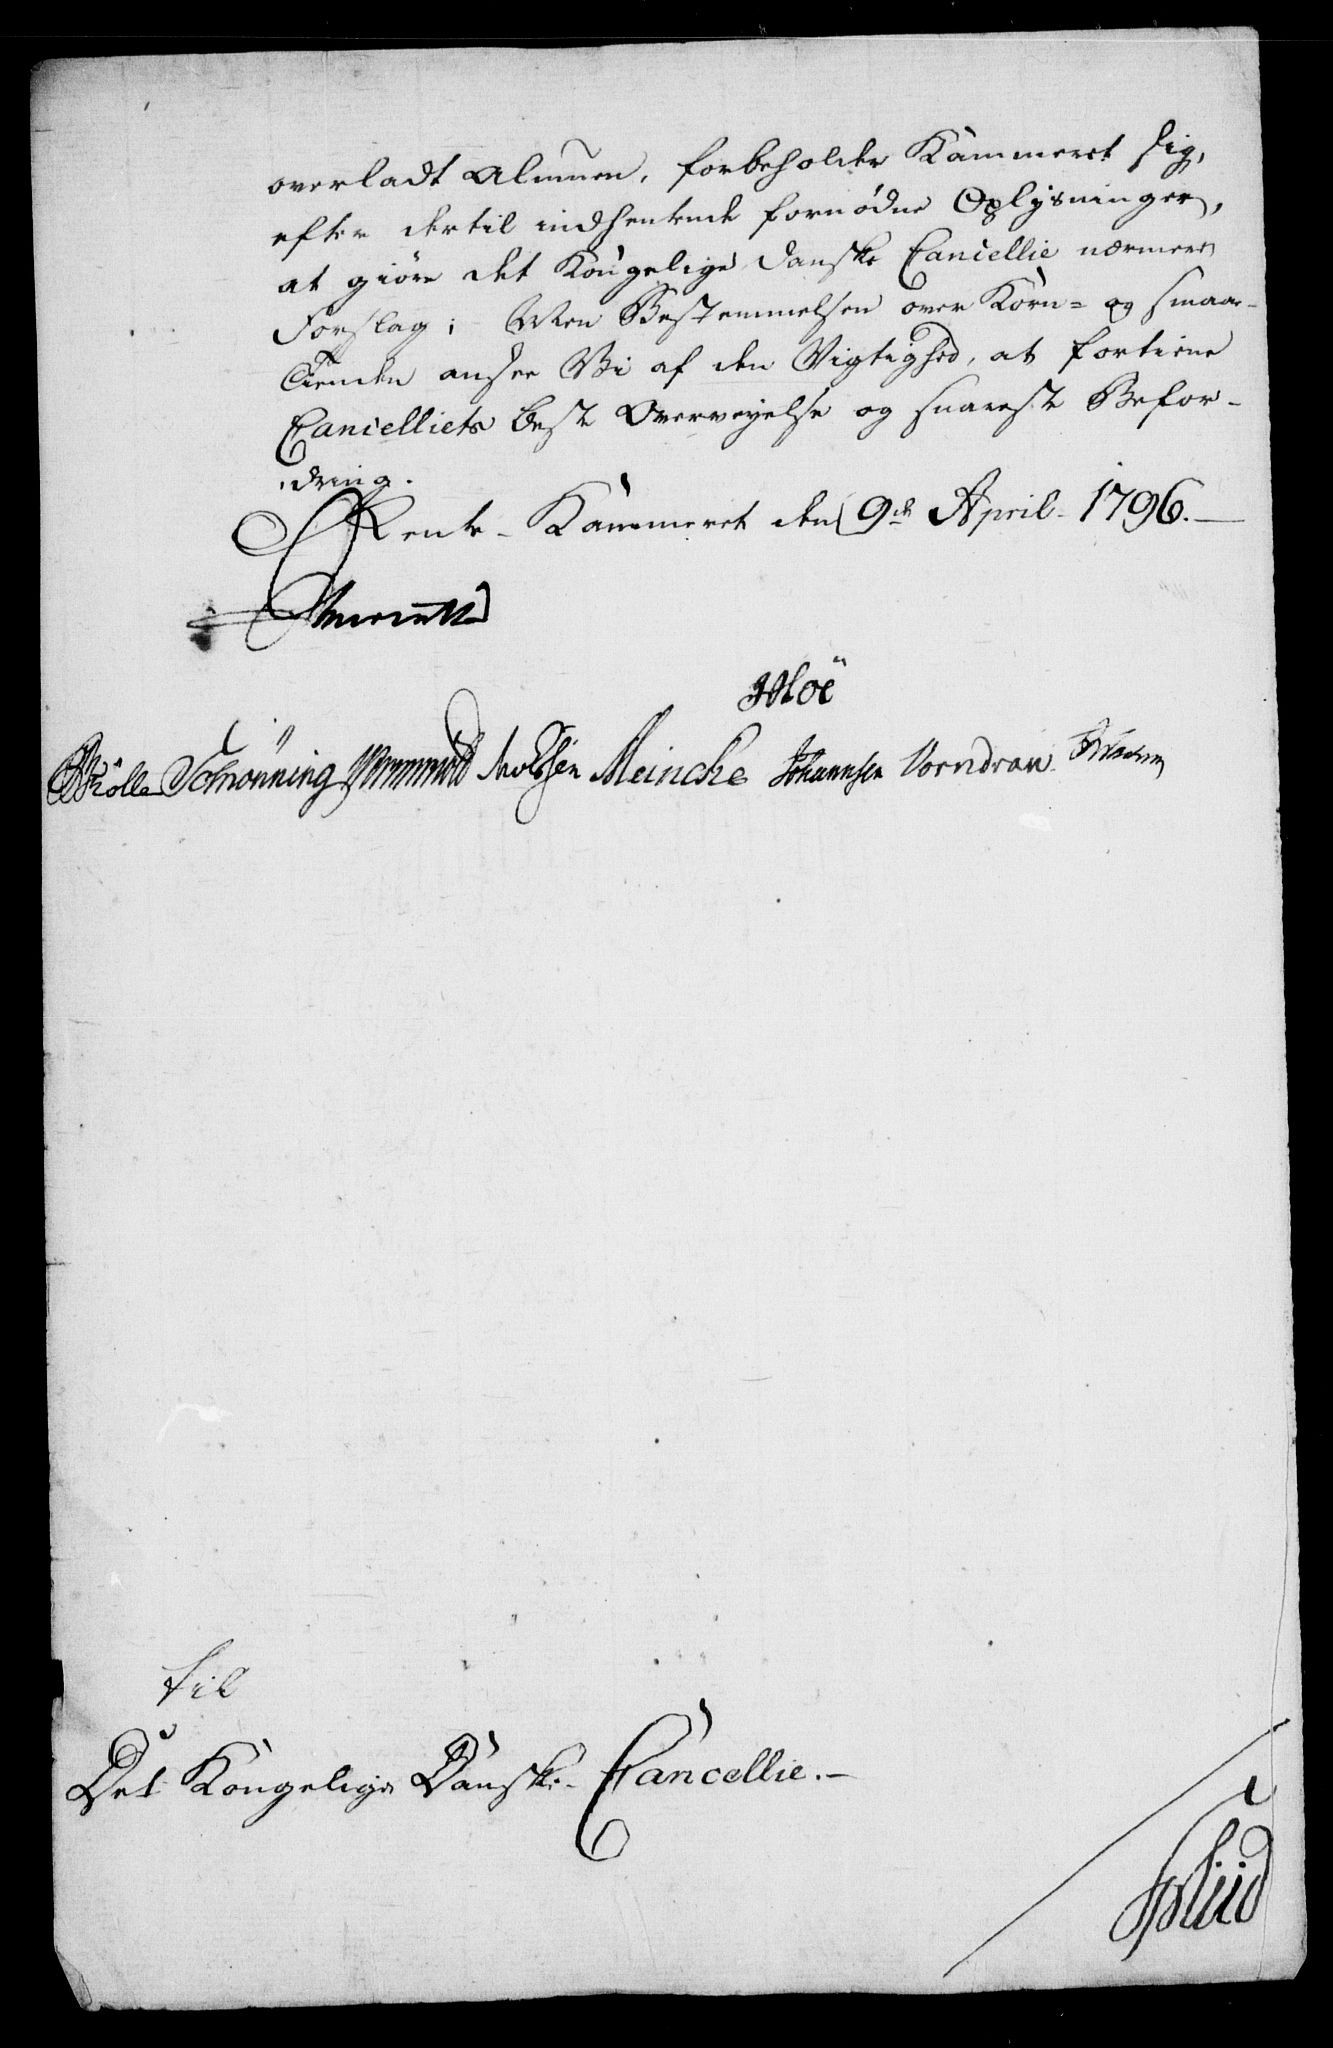 overladt Almuen, forbeholder Kammeret sig,
efter dertil indhentende fornødne Oplysninger,
at giøre det Kongelige danske Cancellie nærmere
Forslag; Men Bestemmelsen over Korn= og smaae-
Tienden ansee Vi af den Vigtighed, at fortiene
Cancelliets beste Overveyelse og snareste Befor-
dring.
Rente-Kammeret den 9de April 1796.
Moë
Schönning Wormskiold Meincke Johannsen Vorndran
til
Det Kongelige Danske Cancellie.-